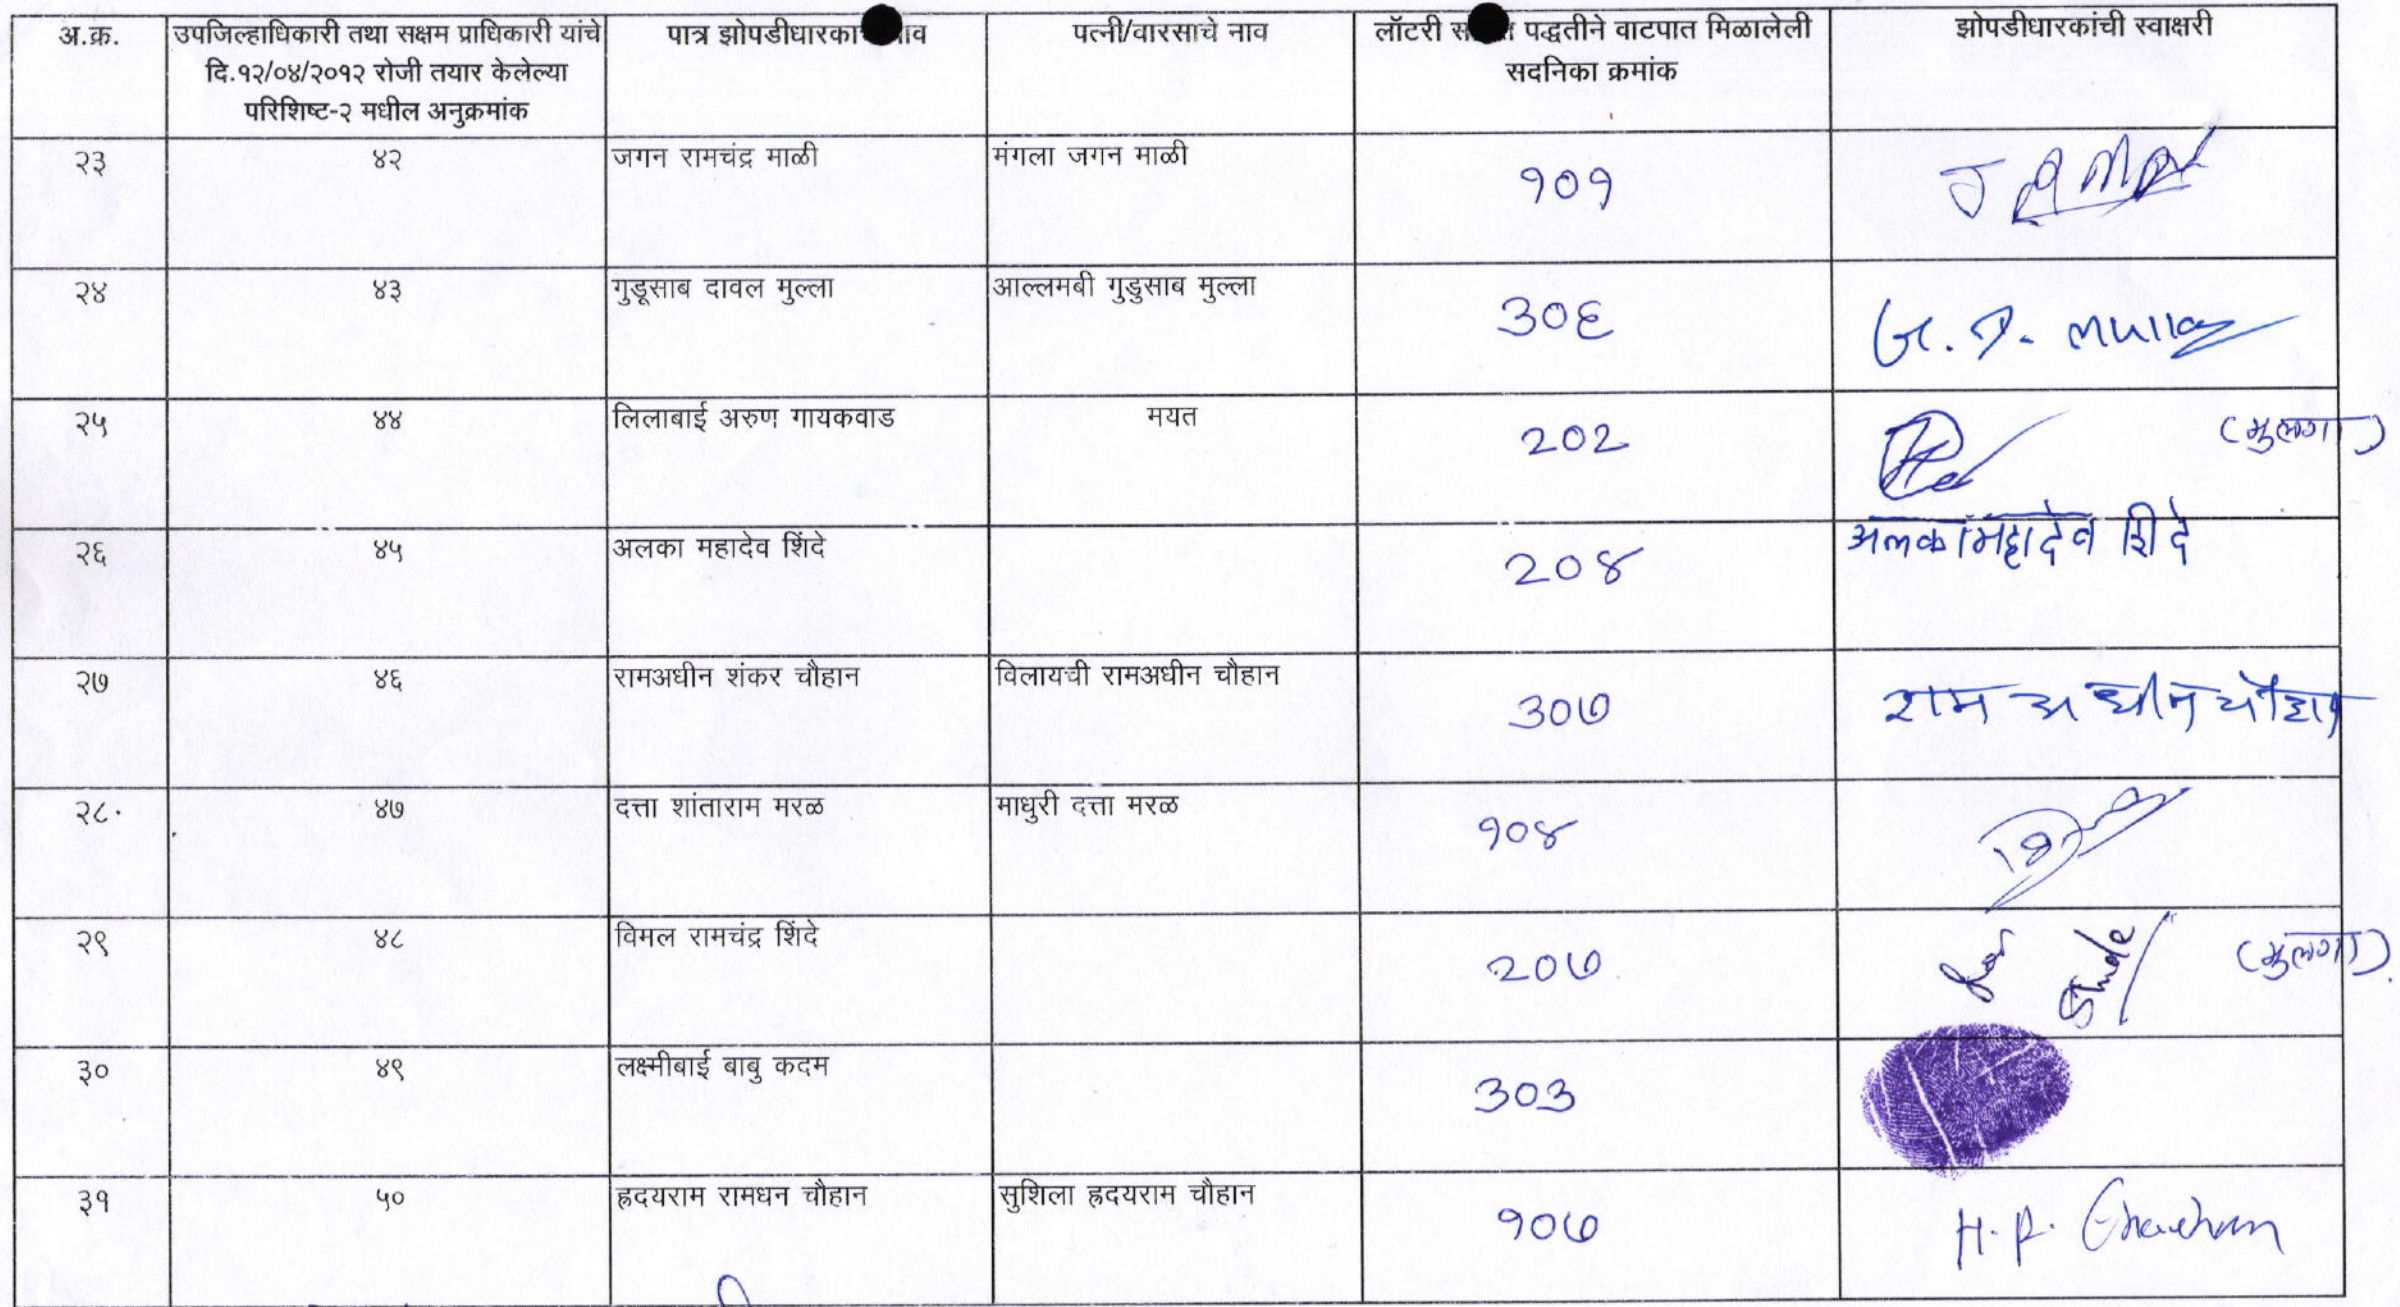 अ.क्र. उपजिल्हाधिकारी तथा सक्षम प्राधिकारी यांचे पात्र झोपडीधारका ाव पत्नी/वारसाचे नाव लॉटरी पद्धतीने वाटपात मिळालेली झोपडीधारकांची स्वाक्षरी
दि.१२/०४/२०१२ रोजी तयार केलेल्या सदनिका क्रमांक
परिशिष्ट-२ मधील अनुक्रमांक
२३ ४२ जगन रामचंद्र माळी मंगला जगन माळी १०१
२४ ४३ गुडूसाब दावल मुल्ला आल्लमबी गुडुसाब मुल्ला ३०६ G. D. Mulla
२५ ४४ लिलाबाई अरुण गायकवाड मयत २०२ (मुलगा)
२६ ४५ अलका महादेव शिंदे २०४ अलका महादेव शिंदे
२७ ४६ रामअधीन शंकर चौहान विलायची रामअधीन चौहान ३०७ राम अधीन चौहान
२८. ४७ दत्ता शांताराम मरळ माधुरी दत्ता मरळ १०४
२९ ४८ विमल रामचंद्र शिंदे २०७ Shinde (मुलगा)
३० ४९ लक्ष्मीबाई बाबु कदम ३०३
३१ ५० ह्रदयराम रामधन चौहान सुशिला ह्रदयराम चौहान १०७ H. R. Chauhan